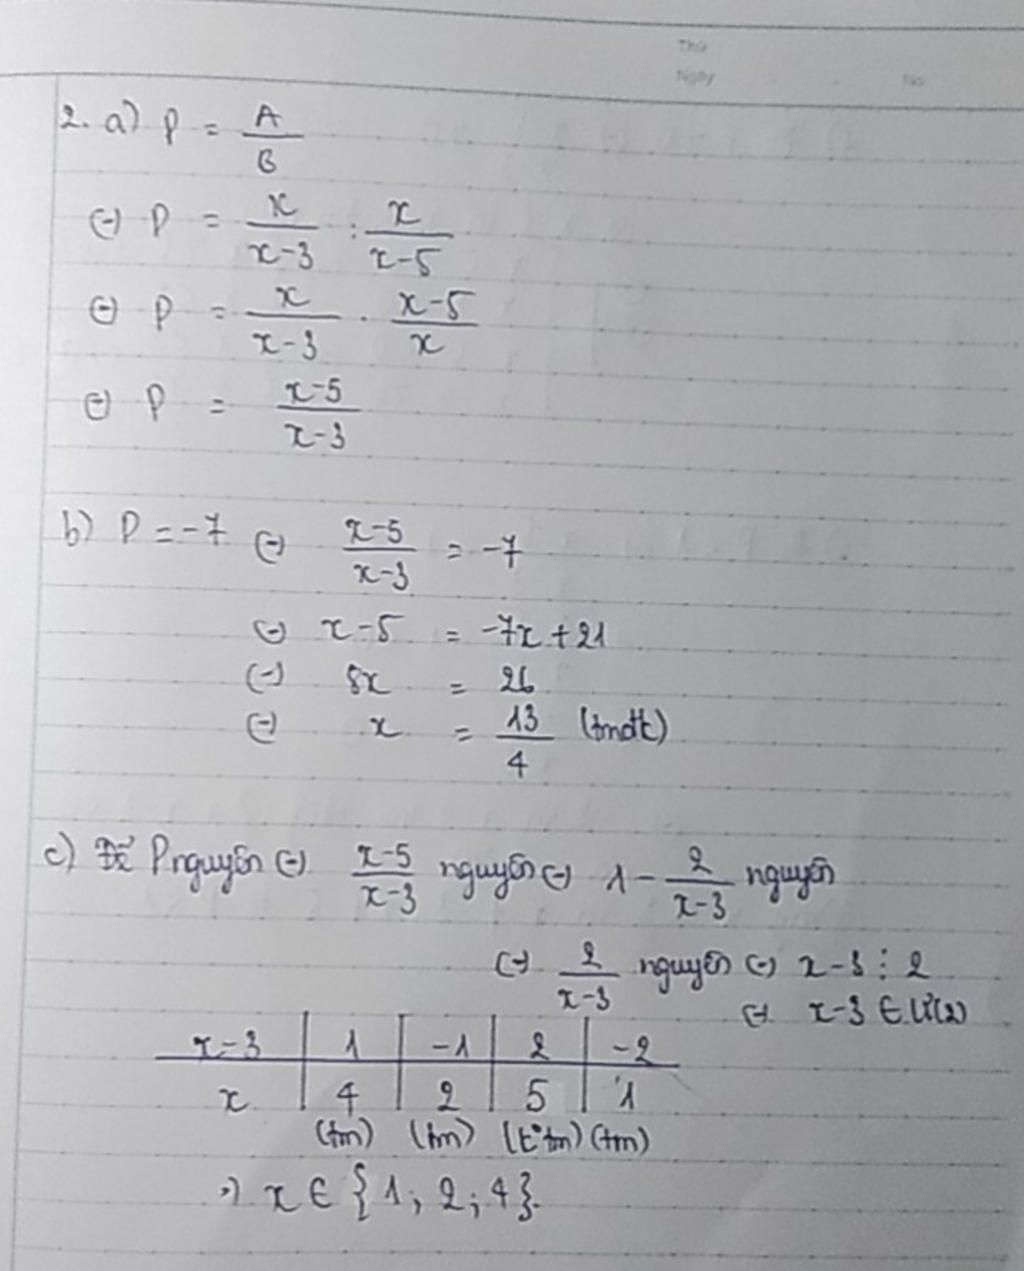 Thứ
Ngày No
2. a) P = A/B
(-) P = x/(x-3) : x/(x-5)
(-) P = x/(x-3) . (x-5)/x
(-) P = (x-5)/(x-3)
b) P = -7 (-) (x-5)/(x-3) = -7
(-) x-5 = -7x + 21
(-) 8x = 26
(-) x = 13/4 (tmđk)
c) Để P nguyên (-) (x-5)/(x-3) nguyên (-) 1 - 2/(x-3) nguyên
(-) 2/(x-3) nguyên (-) x-3 ⋮ 2
(-) x-3 ∈ Ư(2)
x-3 | 1 | -1 | 2 | -2
x | 4 | 2 | 5 | 1
(tm) (tm) (k°tm) (tm)
=) x ∈ {1; 2; 4}.